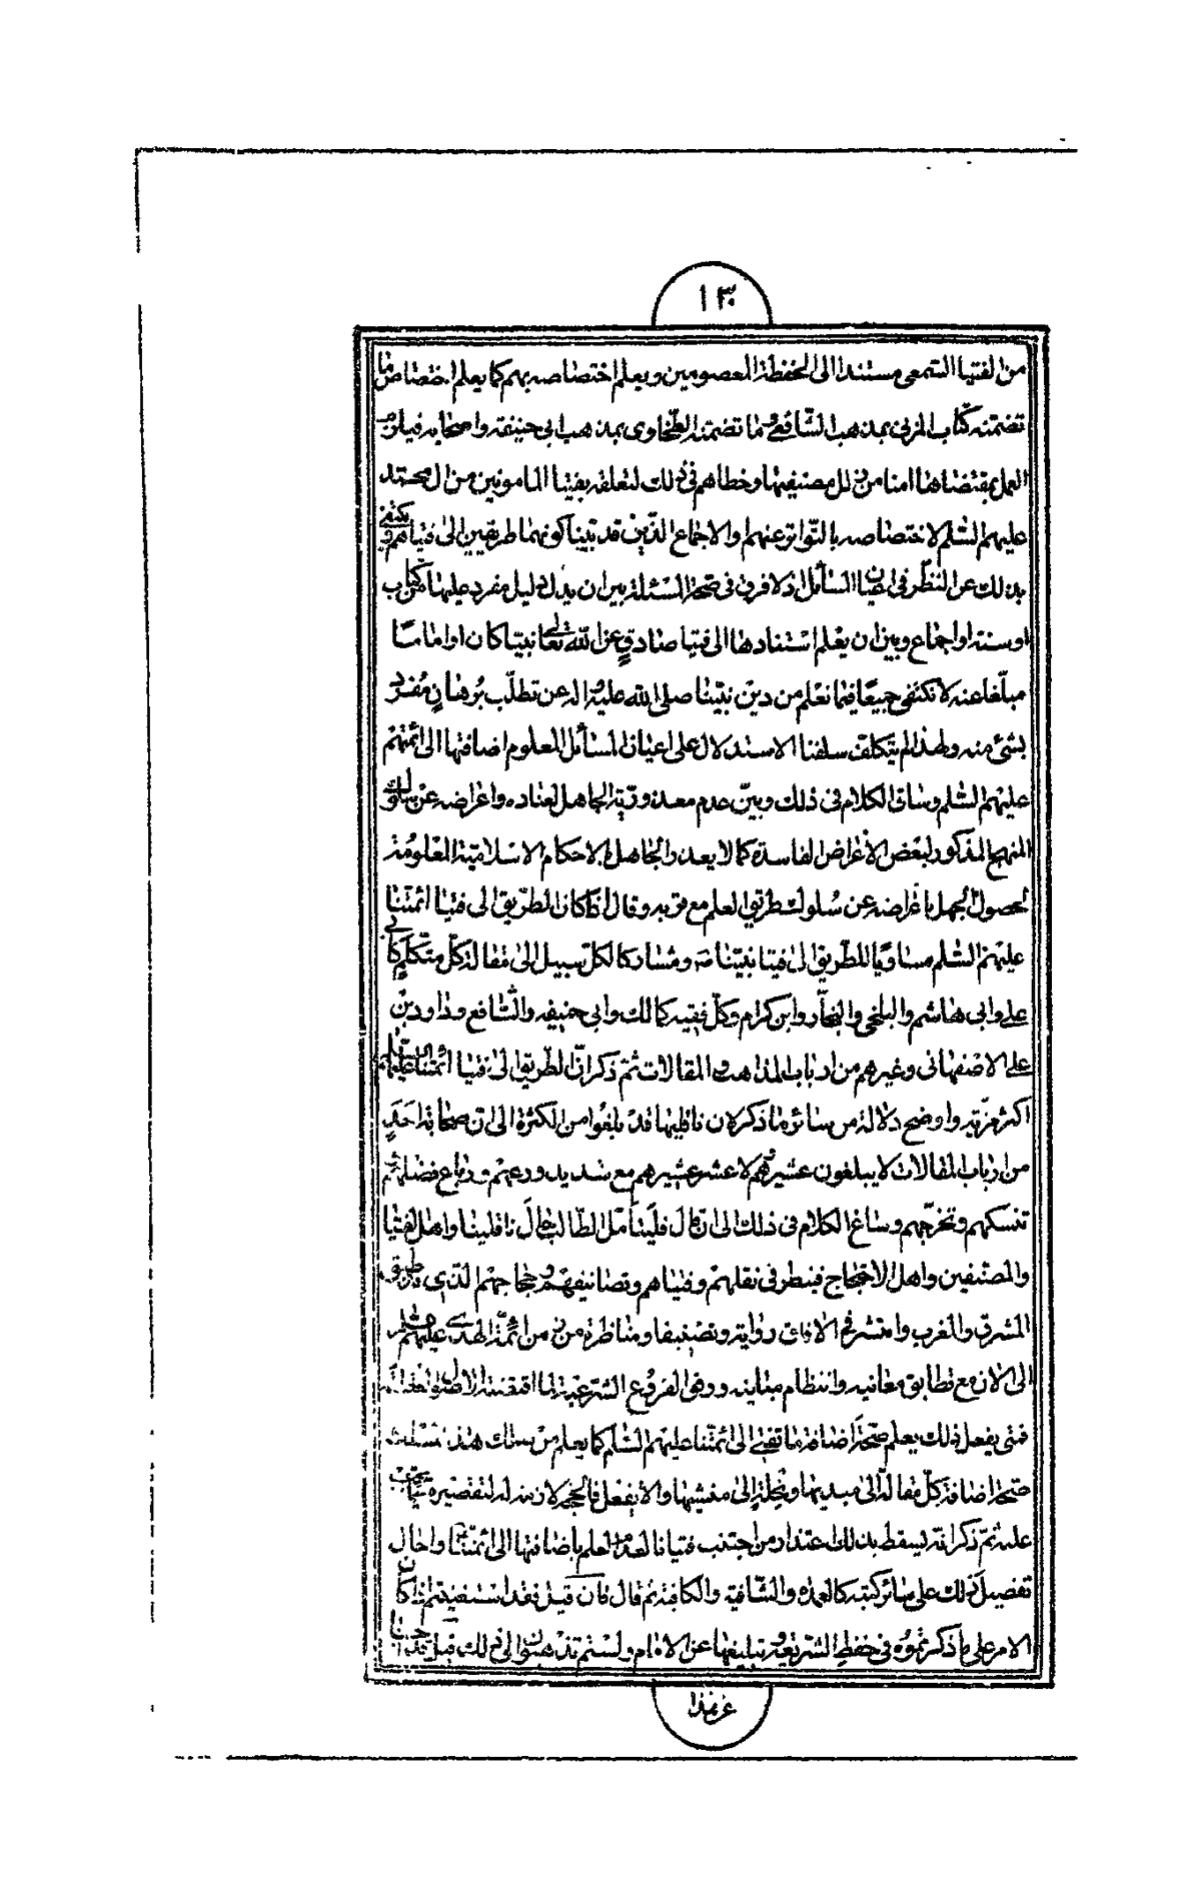 ١٣
من الفتيا الشمعى مستندا الى الحفظة المعصومين ويعلم اختصاصه بهم كما يعلم اختصاص ما
تضمنه كتاب المزنى بمذهب الشافعى وما تضمنه الطحاوى بمذهب ابى حنيفة واصحابه فيلزم
العمل بمقتضاها امنا من زلل مصنفيها وخطاهم فى ذلك لتعلقه بفتيا المامونين من ال محمد
عليهم السلم لاختصاصه بالتواتر عنهم والاجماع الذين قد تبينا كونهما طريقين الى فتياهم ويكتفى
بذلك عن النظر فى اعيان المسائل اذ لا فرق فى صحة المسئلة بين ان يدل دليل مفرد عليها كتاب
او سنة او اجماع وبين ان يعلم استنادها الى فتيا صادق عن الله تعالى نبيا كان او اماما
مبلغا عنه لانكتفى جميعا فيما نعلم من دين نبينا صلى الله عليه واله عن تطلب برهان مفرد
بشئ منه ولهذا لم يتكلف سلفنا الاستدلال على اعيان المسائل المعلوم اضافتها الى ائمتهم
عليهم السلم وساق الكلام فى ذلك وبين عدم معذورية الجاهل لعناده واعراضه عن سلوك
المنهج المذكور لبعض الأغراض الفاسدة كما لا يعذر الجاهل بالاحكام الاسلامية المعلومة
لحصول الجهل باعراضه عن سلوك طريق العلم مع قربه وقال اذا كان الطريق الى فتيا ائمتنا
عليهم السلم مساويا للطريق الى فتيا نبينا ص ومشاركا لكل سبيل الى مقالة كل متكلم كابى
على وابى هاشم والبلخى والنجار وابن كرام وكل فقيه كمالك وابى حنيفه والشافع وداود بن
على الاصفهانى وغيرهم من ارباب المذاهب والمقالات ثم ذكر ان الطريق الى فتيا ائمتنا عليهم السلم
اكثر مزية واوضح دلالة من سائر ما ذكر لان ناقليها قد بلغوا من الكثرة الى ان صحابة احد
من ارباب المقالات لا يبلغون عشيرهم لا عشر عشيرهم مع شديد ورعهم و فضلهم
تنسكهم وتحرجهم وساغ الكلام فى ذلك الى ان قال فليتأمل الطالب حال ناقلينا واهل الفتيا
والمصنفين واهل الاحتجاج فينظر فى نقلهم وفتياهم وتصانيفهم وحجاجهم الذى طبق
المشرق والمغرب وانتشر فى الافاق رواية وتصنيفا ومناظرة من زمن ائمة الهدى عليهم السلم
الى الان مع تطابق معانيه وانتظام مبانيه ووفق الفروع الشرعية لما اقتضته الاصول
فمتى يفعل ذلك يعلم صحة اضافة ما تفتى الى ائمتنا عليهم السلم كما يعلم من يسلك هذا المسلك
صحة اضافة كل مقالة الى مبديها ونحلة الى مفشيها والا يفعل فالحجة لازمة له لتقصيره عما يجب
عليه ثم ذكر انه يسقط بذلك اعتذار من اجتنب فتيانا لعدم العلم باضافتها الى ائمتنا واحال
تفصيل ذلك على سائر كتبه كالعمدة والشافية والكافية ثم قال فان قيل فقد استغنيتم اذا كان
الامر على ما ذكرتموه فى حفظ الشريعة وتبليغها عن الامام ولستم تذهبون الى ذلك قيل قد احبنا
عن هذا